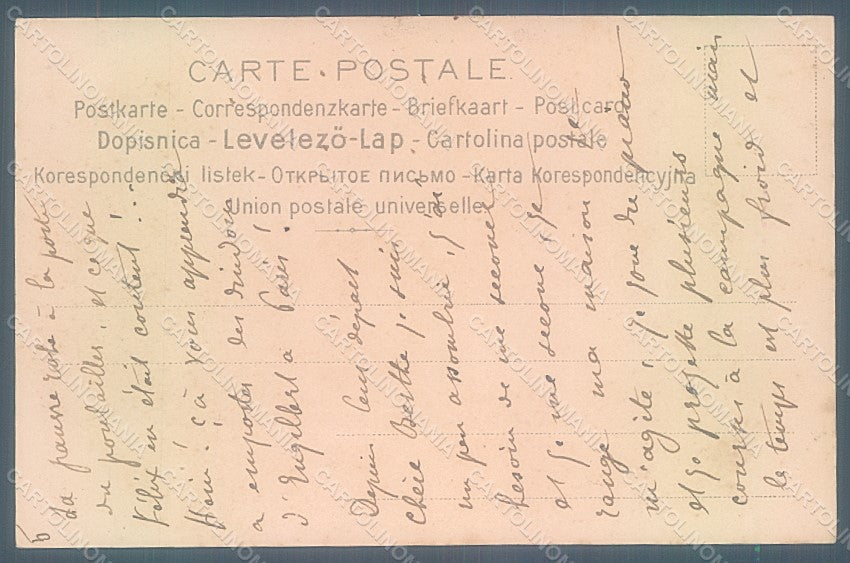 CARTE POSTALE
Postkarte - Correspondenzkarte - Briefkaart - Post card
Dopisnica - Levelező-Lap - Cartolina postale
Korespondenční listek - Открытое письмо - Karta Korespondencyjna
Union postale universelle
6
La pauvre reste à la porte
du poulailles, et ce que
Félix en était content!..
Hein! çà vous apprendra
a emporter les dindons
d'Engilbert à Paris!
Depuis leur départ
chère Berthe je suis
un peu assombrie, j'ai
besoin de me secouer
et je me secoue; je
range ma maison, je
m'agite, je joue du piano
et je projette plusieurs
courses à la campagne mais
le temps est plus froid et
CARTOLINOMANIA